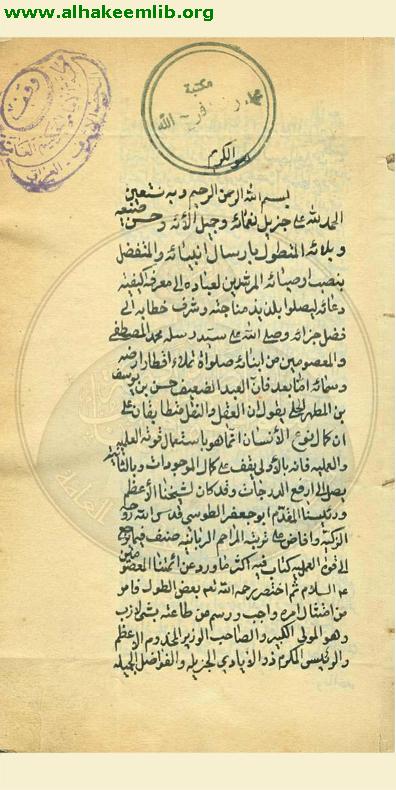 www.alhakeemlib.org
وقف
مكتبة
الله
هو الكريم
بسم الله الرحمن الرحيم وبه نستعين
الحمد لله على جزيل نعمائه وجميل آلائه وحسن صنيعه
وبلائه المتطول بارسال انبيائه والمتفضل
بنصب اوصيائه المرشدين لعباده الى معرفة كيفية
دعائه ليصلوا بلذيذ مناجته وشرف خطابه الى
فضل جزائه وصلى الله على سيد رسله محمد المصطفى
والمعصومين من ابنائه صلواة تملاء اقطار ارضه
وسمائه اما بعد فان العبد الضعيف حسن بن يوسف
بن المطهر الحلي يقول ان العقل والنقل متطابقان على
ان كمال نوع الانسان انما هو باستعمال قوته العلميه
والعمليه فانه بالاولى يقف على كمال الموجودات وبالثانية
يصل الى ارفع الدرجات وقد كان لشيخنا الاعظم
ورئيسنا المقدم ابو جعفر الطوسي قدس الله روحه
الزكية وافاض على تربته المراحم الربانيه صنف فيما يرجع
الى قوة العمليه كتاب فيه اكثر ما ورد عن ائمتنا المعصومين
عم السلام ثم اختصر رحمه الله بعض الطول فامر
من امتثال امره واجب ورسم من طاعته بشر لازب
وهو المولى الكبير والصاحب الوزير المخدوم الاعظم
والرئيسى المكرم ذو الايادي الجزيله والفواضل الجميله